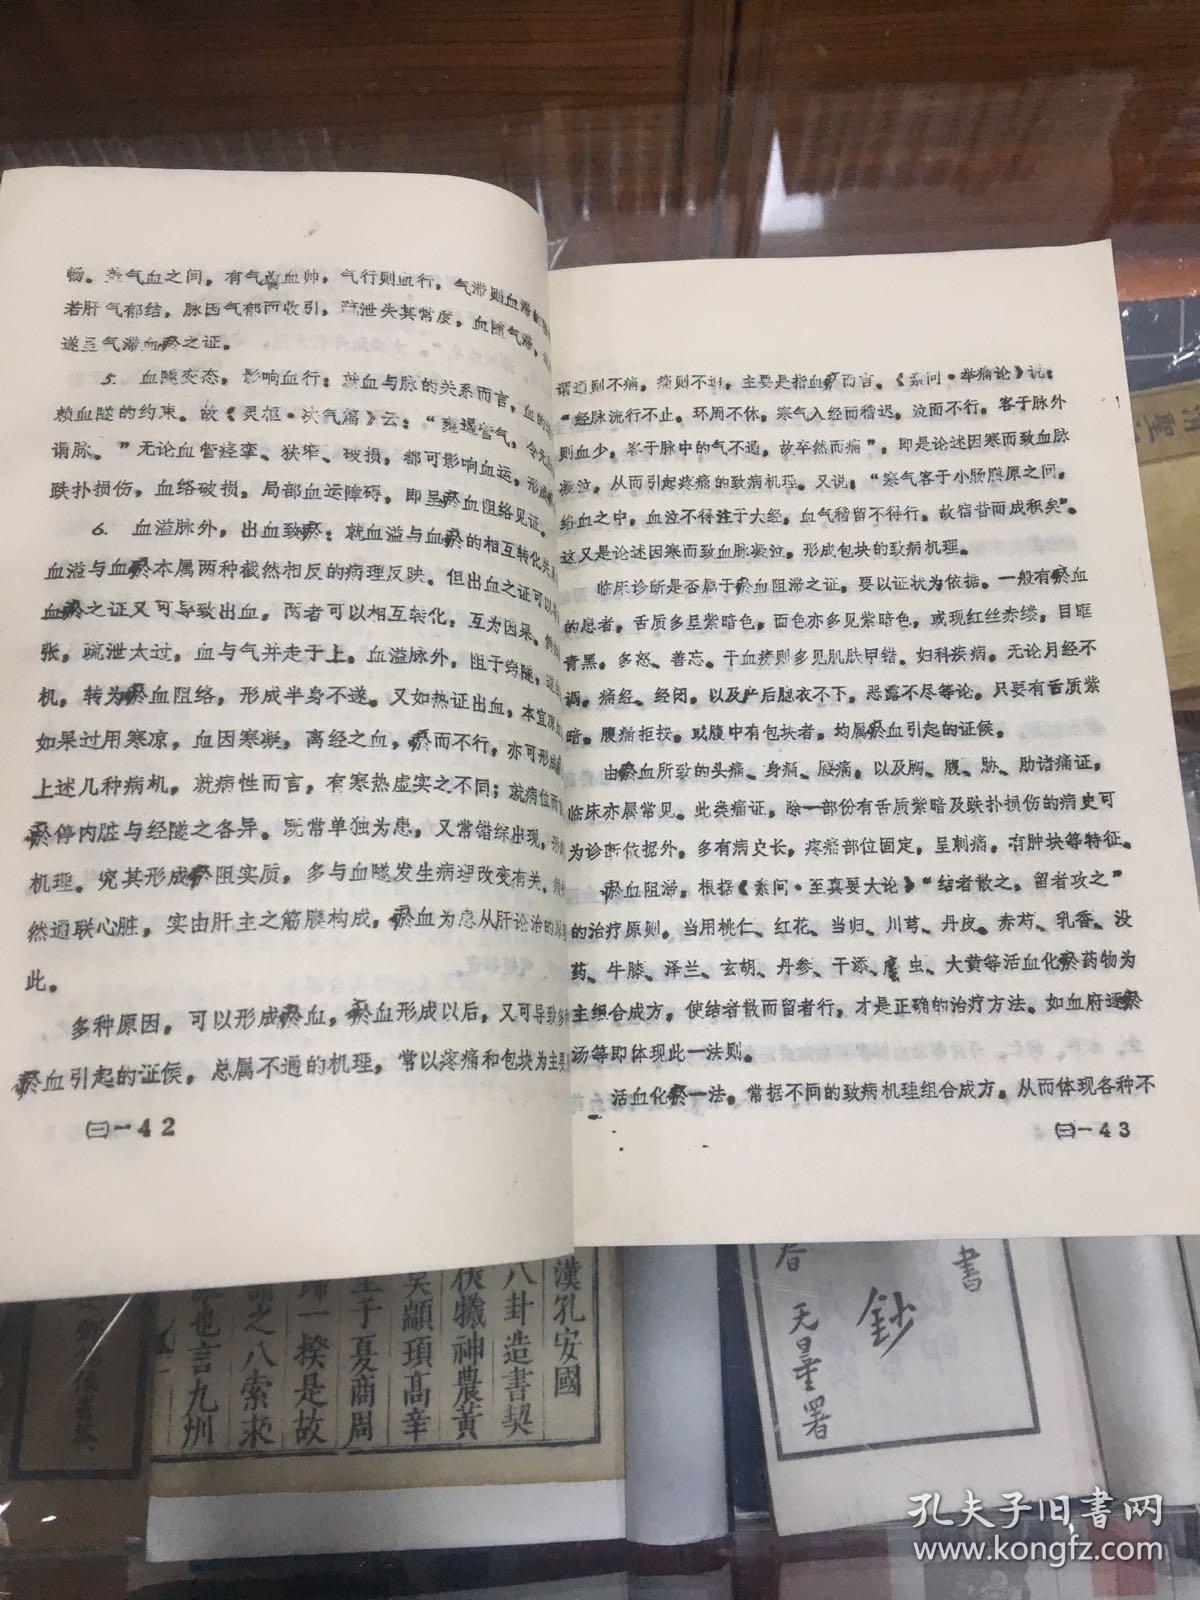 畅。盖气血之间，有气为血帅，气行则血行，气滞则血滞
若肝气郁结，脉因气郁而收引，疏泄失其常度，血随气滞，
遂呈气滞血瘀之证。
5. 血隧变态，影响血行：就血与脉的关系而言，血的
赖血隧的约束。故《灵枢·决气篇》云：“壅遏营气，令无
谓脉。”无论血管痉挛、狭窄、破损，都可影响血运，形成
跌扑损伤，血络破损，局部血运障碍，即呈瘀血阻络见证。
6. 血溢脉外，出血致瘀：就血溢与血瘀的相互转化关
血溢与血瘀本属两种截然相反的病理反映。但出血之证可以
血瘀之证又可导致出血，两者可以相互转化，互为因果。例如
张，疏泄太过，血与气并走于上。血溢脉外，阻于窍隧，遂
机，转为瘀血阻络，形成半身不遂。又如热证出血，本宜凉
如果过用寒凉，血因寒凝，离经之血，瘀而不行，亦可形成
上述几种病机，就病性而言，有寒热虚实之不同；就病位而言
瘀停内脏与经隧之各异。既常单独为患，又常错综出现，形
机理。究其形成瘀阻实质，多与血隧发生病理改变有关。
然通联心脏，实由肝主之筋膜构成，瘀血为患从肝论治的
此。
多种原因，可以形成瘀血，瘀血形成以后，又可导致
瘀血引起的证候，总属不通的机理，常以疼痛和包块为主要
㈢－42
谓通则不痛，痛则不通，主要是指血瘀而言。《素问·举痛论》说：
“经脉流行不止，环周不休，寒气入经而稽迟，泣而不行。客于脉外
则血少，客于脉中的气不通，故卒然而痛”，即是论述因寒而致血脉
凝泣，从而引起疼痛的致病机理。又说：“寒气客于小肠膜原之间，
络血之中，血泣不得注于大经，血气稽留不得行。故宿昔而成积矣”。
这又是论述因寒而致血脉凝泣，形成包块的致病机理。
临床诊断是否属于瘀血阻滞之证，要以证状为依据。一般有瘀血
的患者，舌质多呈紫暗色，面色亦多见紫暗色，或现红丝赤缕，目眶
青黑。多怒、善忘。干血痨则多见肌肤甲错。妇科疾病，无论月经不
调，痛经、经闭，以及产后胞衣不下，恶露不尽等论。只要有舌质紫
暗。腹痛拒按。或腹中有包块者。均属瘀血引起的证候。
由瘀血所致的头痛、身痛、腰痛，以及胸、腹、胁、肋诸痛证，
临床亦属常见。此类痛证，除一部份有舌质紫暗及跌扑损伤的病史可
为诊断依据外，多有病史长，疼痛部位固定，呈刺痛。有肿块等特征。
瘀血阻滞，根据《素问·至真要大论》“结者散之，留者攻之”
的治疗原则，当用桃仁、红花、当归、川芎、丹皮。赤芍、乳香、没
药、牛膝、泽兰、玄胡、丹参、干添、䗪虫、大黄等活血化瘀药物为
主组合成方，使结者散而留者行，才是正确的治疗方法。如血府逐瘀
汤等即体现此一法则。
活血化瘀一法。常据不同的致病机理组合成方。从而体现各种不
㈢－43
漢孔安國
八卦造書契
伏犧神農黃
昊顓頊高辛
至于夏商周
歸一揆是故
謂之八索求
也言九州
書
鈔
无量署
孔夫子旧书网
www.kongfz.com